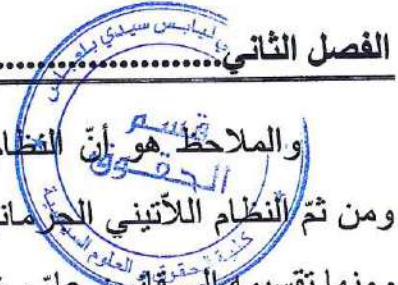 الفصل الثاني......................
والملاحظ هو أنّ النظا
ومن ثمّ النظام اللاّتيني الجرمان
قسم
الحقوق
ليابس سيدي بلعباس
كلية الحقوق العلوم السياسية